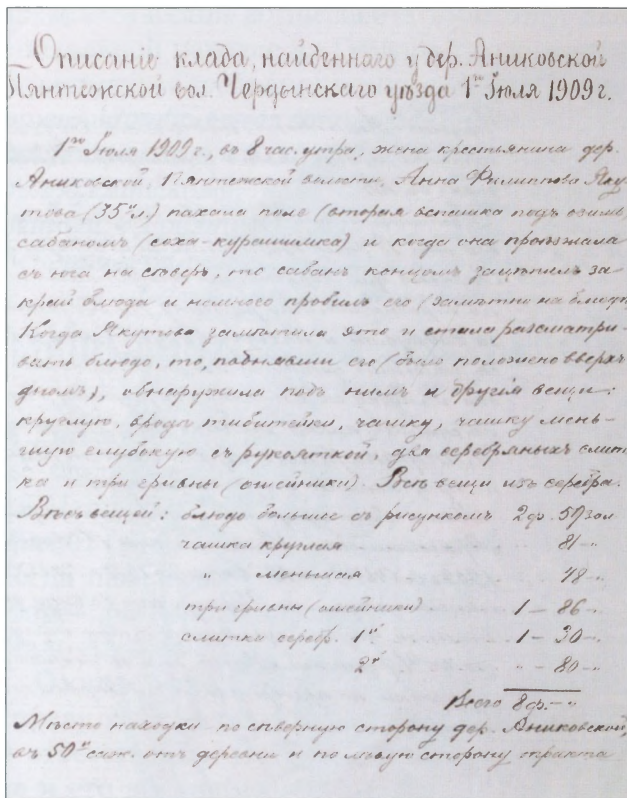 Описаніе клада, найденнаго у дер. Аниковской
Пянтежской вол. Чердынскаго уѣзда 1го Іюля 1909 г.
1го Іюля 1909 г., въ 8 час. утра, жена крестьянина дер.
Аниковской, Пянтежской волости, Анна Филиппова Яку-
това (35 л.) пахала поле (вторая вспашка подъ озимь
сабаномъ (соха-курашимка) и когда она проѣзжала
съ юга на сѣверъ, то сабанъ концомъ зацѣпилъ за
край блюда и немного пробилъ его (замѣтно на блюдѣ
Когда Якутова замѣтила это и стала разсматри-
вать блюдо, то, поднявши его (было положено вверхъ
дномъ), обнаружила подъ нимъ и другія вещи:
круглую, вродѣ тибитейки, чашку, чашку мень-
шую глубокую съ рукояткой, два серебряныхъ слит-
ка и три гривны (ошейники). Всѣ вещи изъ серебра.
Вѣсъ вещей: блюдо большое съ рисункомъ 2 ф. 59 зол
чашка круглая " 81 - "
" меньшая " 48 - "
три гривны (ошейники) 1 - 86 - "
слитки серебр. 1й 1 - 30 - "
2й " - 80 - "
Всего 8 ф. - "
Мѣсто находки по сѣверную сторону дер. Аниковской,
въ 50 саж. отъ деревни и по лѣвую сторону тракта